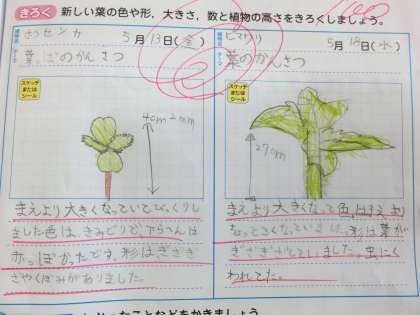 きろく 新しい葉の色や形、大きさ、数と植物の高さをきろくしましょう。
植物名 ホウセンカ
5月13日(金)
テーマ 葉のかんさつ
スケッチ
または
シール
4cm2mm
まえより大きくなっていてびっくりし
ました色は、きみどりで、下らへんは
赤っぽかったです。形はぎざぎ
ざやくぼみがありました。
植物名 ヒマワリ
5月18日(水)
テーマ 葉のかんさつ
スケッチ
または
シール
27cm
まえより大きくなって色はまえより
形は葉が
ぎざぎざしていました。虫にく
われてた。
ことなどをかきましょう。